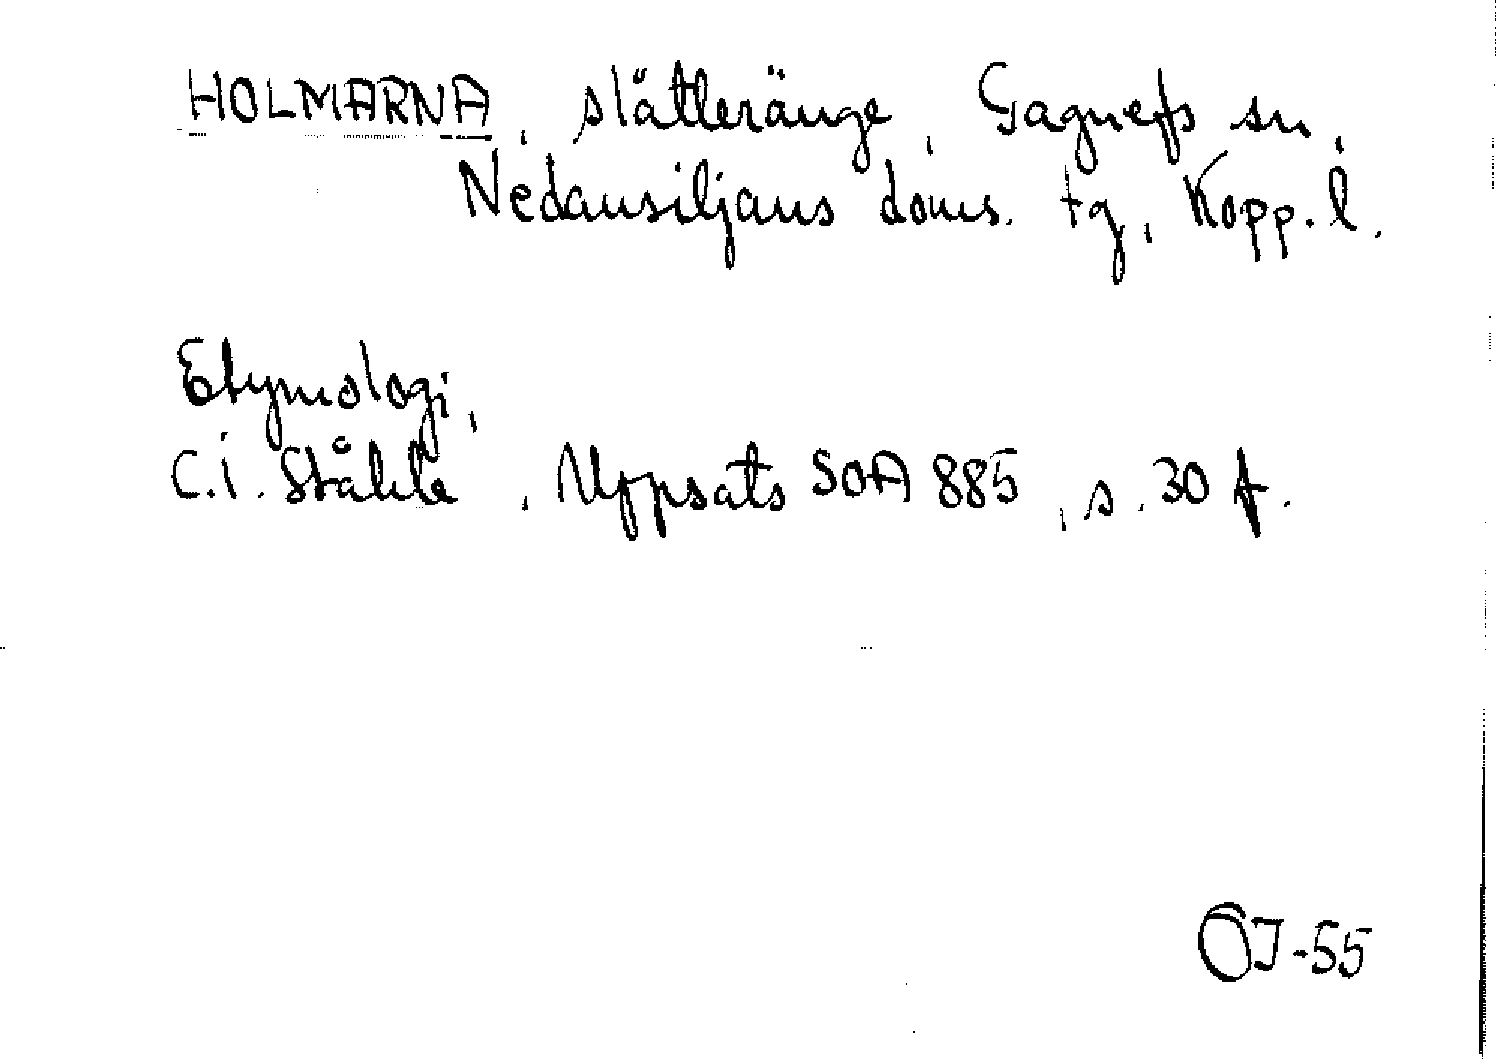 HOLMARNA, slätteränge, Gagnefs sn,
Nedansiljans doms. tg, Kopp. l.
Etymologi,
C.I. Ståhle, Uppsats SOA 885, s. 30 f.
ÖJ-55